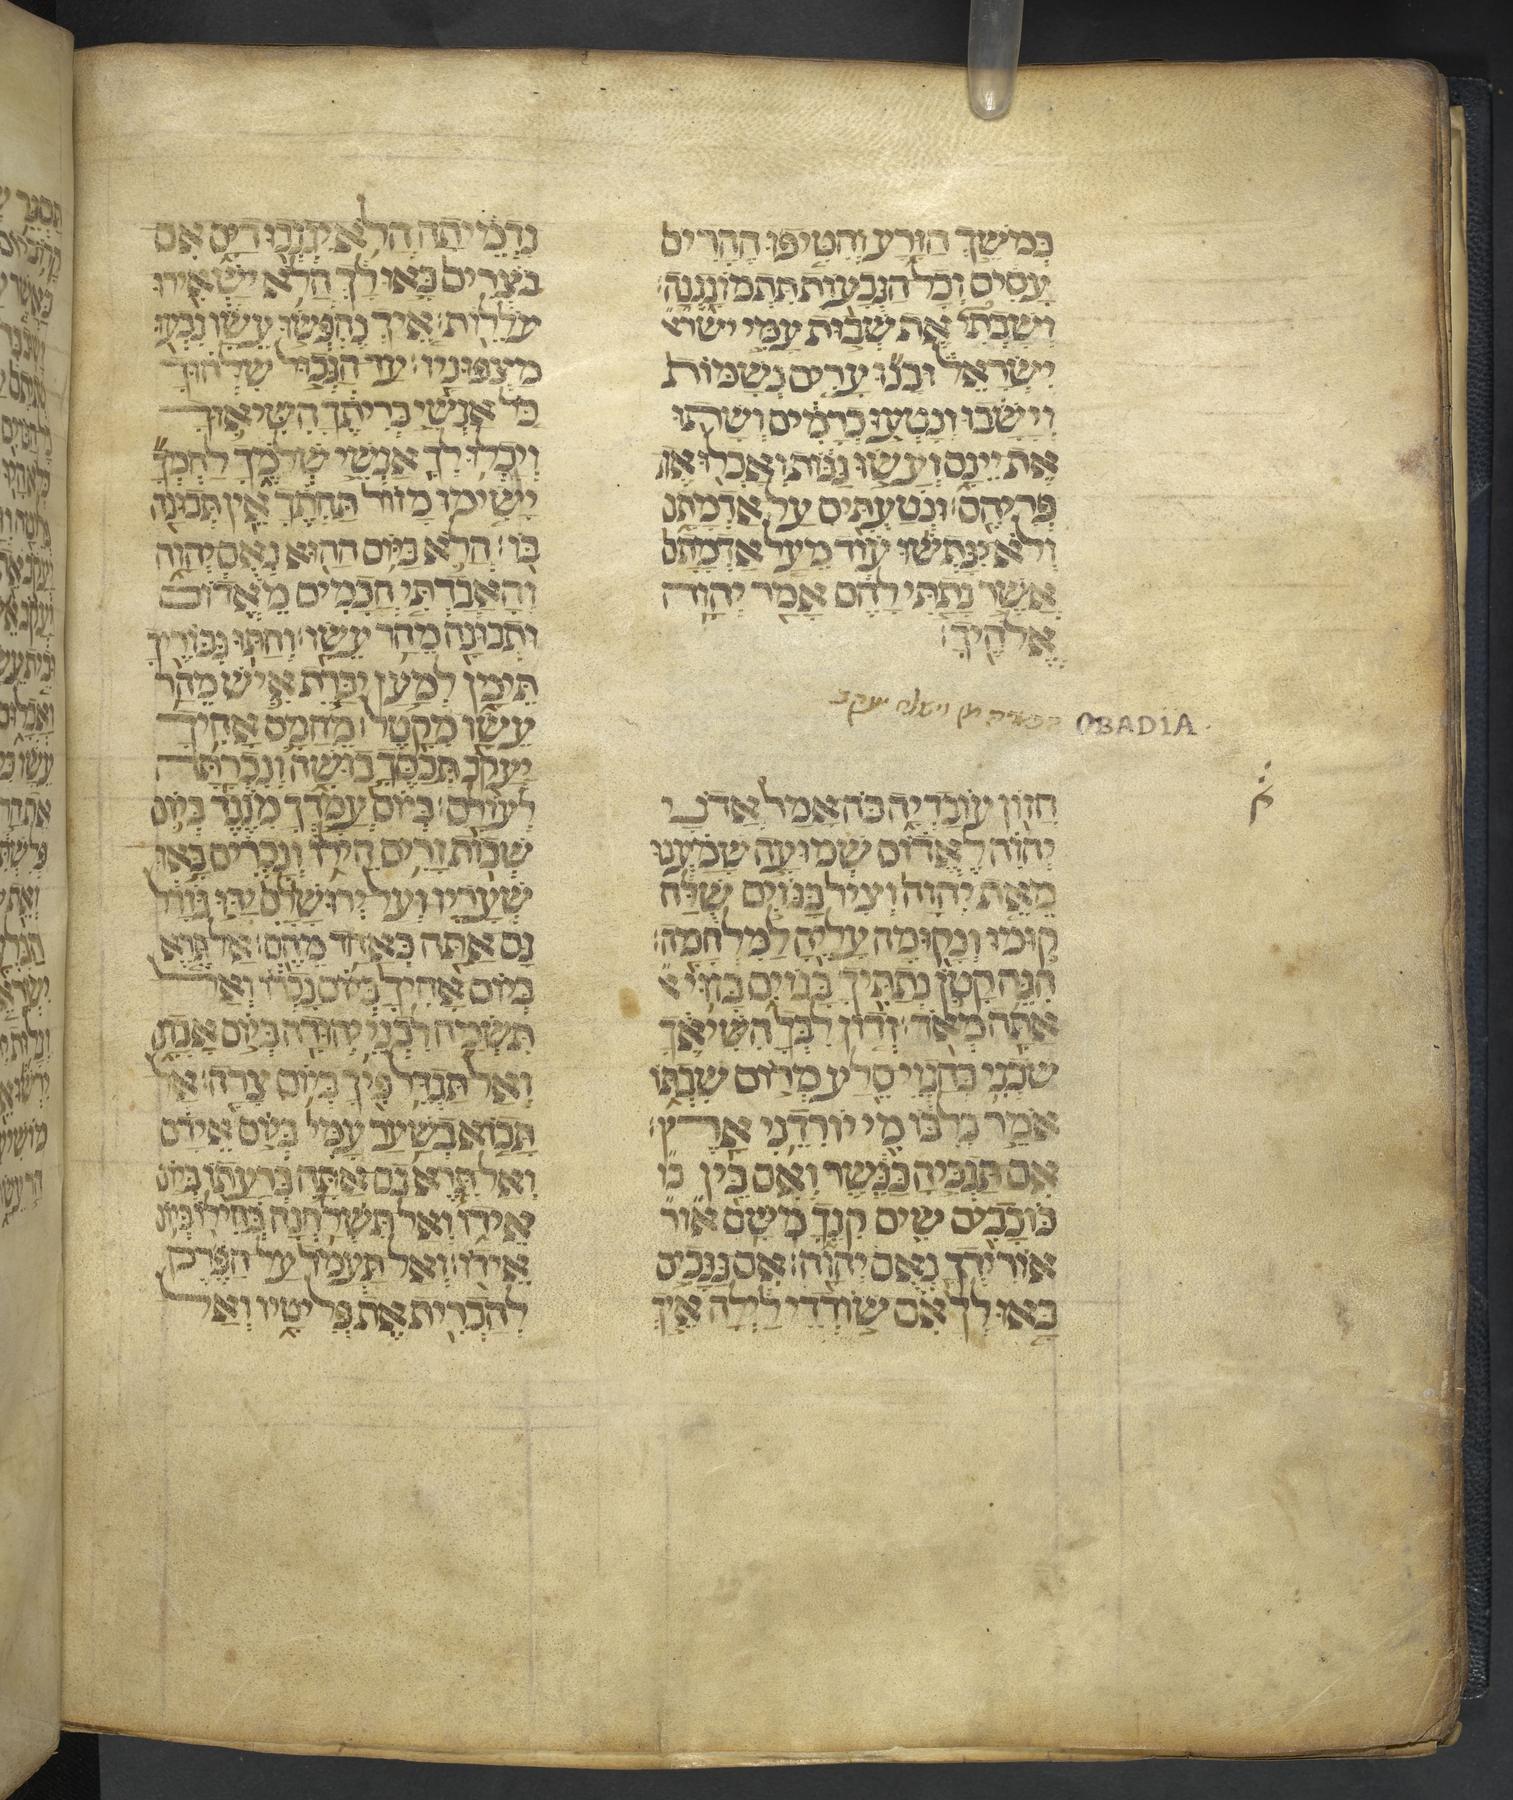 בְּמֹשֵׁךְ הַזָּרַע וְהִטִּיפוּ הֶהָרִים
עָסִיס וְכָל הַגְּבָעוֹת תִּתְמוֹגַגְנָה׃
וְשַׁבְתִּי אֶת שְׁבוּת עַמִּי ישרא
יִשְׂרָאֵל וּבָנוּ עָרִים נְשַׁמּוֹת
וְיָשָׁבוּ וְנָטְעוּ כְרָמִים וְשָׁתוּ
אֶת יֵינָם וְעָשׂוּ גַנּוֹת וְאָכְלוּ את
פְּרִיהֶם׃ וּנְטַעְתִּים עַל אַדְמָתָם
וְלֹא יִנָּתְשׁוּ עוֹד מֵעַל אַדְמָתָם
אֲשֶׁר נָתַתִּי לָהֶם אָמַר יְהוָה
אֱלֹהֶיךָ׃
הפטרה מן וישלח יעקב
OBADIA
א
חֲזוֹן עוֹבַדְיָה כֹּה אָמַר אֲדֹנָי
יְהוִה לֶאֱדוֹם שְׁמוּעָה שָׁמַעְנוּ
מֵאֵת יְהוָה וְצִיר בַּגּוֹיִם שֻׁלָּח
קוּמוּ וְנָקוּמָה עָלֶיהָ לַמִּלְחָמָה׃
הִנֵּה קָטֹן נְתַתִּיךָ בַּגּוֹיִם בָּזוּי א
אַתָּה מְאֹד׃ זְדוֹן לִבְּךָ הִשִּׁיאֶךָ
שֹׁכְנִי בְחַגְוֵי סֶלַע מְרוֹם שִׁבְתּוֹ
אֹמֵר בְּלִבּוֹ מִי יוֹרִדֵנִי אָרֶץ׃
אִם תַּגְבִּיהַּ כַּנֶּשֶׁר וְאִם בֵּין כו
כּוֹכָבִים שִׂים קִנֶּךָ מִשָּׁם אור
אוֹרִידְךָ נְאֻם יְהוָה׃ אִם גַּנָּבִים
בָּאוּ לְךָ אִם שׁוֹדְדֵי לַיְלָה אֵיךְ
נִדְמֵיתָה הֲלֹא יִגְנְבוּ דַּיָּם אִם
בֹּצְרִים בָּאוּ לָךְ הֲלֹא יַשְׁאִירוּ
עֹלֵלוֹת׃ אֵיךְ נֶחְפְּשׂוּ עֵשָׂו נִבְעוּ
מַצְפּוּנָיו׃ עַד הַגְּבוּל שִׁלְּחוּךָ
כֹּל אַנְשֵׁי בְרִיתֶךָ הִשִּׁיאוּךָ
וְיָכְלוּ לְךָ אַנְשֵׁי שְׁלֹמֶךָ לַחְמְךָ
יָשִׂימוּ מָזוֹר תַּחְתֶּיךָ אֵין תְּבוּנָה
בּוֹ׃ הֲלֹא בַּיּוֹם הַהוּא נְאֻם יְהוָה
וְהַאֲבַדְתִּי חֲכָמִים מֵאֱדוֹם
וּתְבוּנָה מֵהַר עֵשָׂו׃ וְחַתּוּ גִבּוֹרֶיךָ
תֵּימָן לְמַעַן יִכָּרֶת אִישׁ מֵהַר
עֵשָׂו מִקָּטֶל׃ מֵחֲמַס אָחִיךָ
יַעֲקֹב תְּכַסְּךָ בוּשָׁה וְנִכְרַתָּה
לְעוֹלָם׃ בְּיוֹם עֲמָדְךָ מִנֶּגֶד בְּיוֹם
שְׁבוֹת זָרִים חֵילוֹ וְנָכְרִים בָּאוּ
שְׁעָרָיו וְעַל יְרוּשָׁלִַם יַדּוּ גוֹרָל
גַּם אַתָּה כְּאַחַד מֵהֶם׃ אַל תֵּרֶא
בְיוֹם אָחִיךָ בְּיוֹם נָכְרוֹ וְאַל
תִּשְׂמַח לִבְנֵי יְהוּדָה בְּיוֹם אָבְדָם
וְאַל תַּגְדֵּל פִּיךָ בְּיוֹם צָרָה׃ אַל
תָּבוֹא בְשַׁעַר עַמִּי בְּיוֹם אֵידָם
וְאַל תֵּרֶא גַם אַתָּה בְּרָעָתוֹ בְּיוֹם
אֵידוֹ וְאַל תִּשְׁלַחְנָה בְחֵילוֹ בְּיוֹם
אֵידוֹ׃ וְאַל תַּעֲמֹד עַל הַפֶּרֶק
לְהַכְרִית אֶת פְּלִיטָיו וְאַל